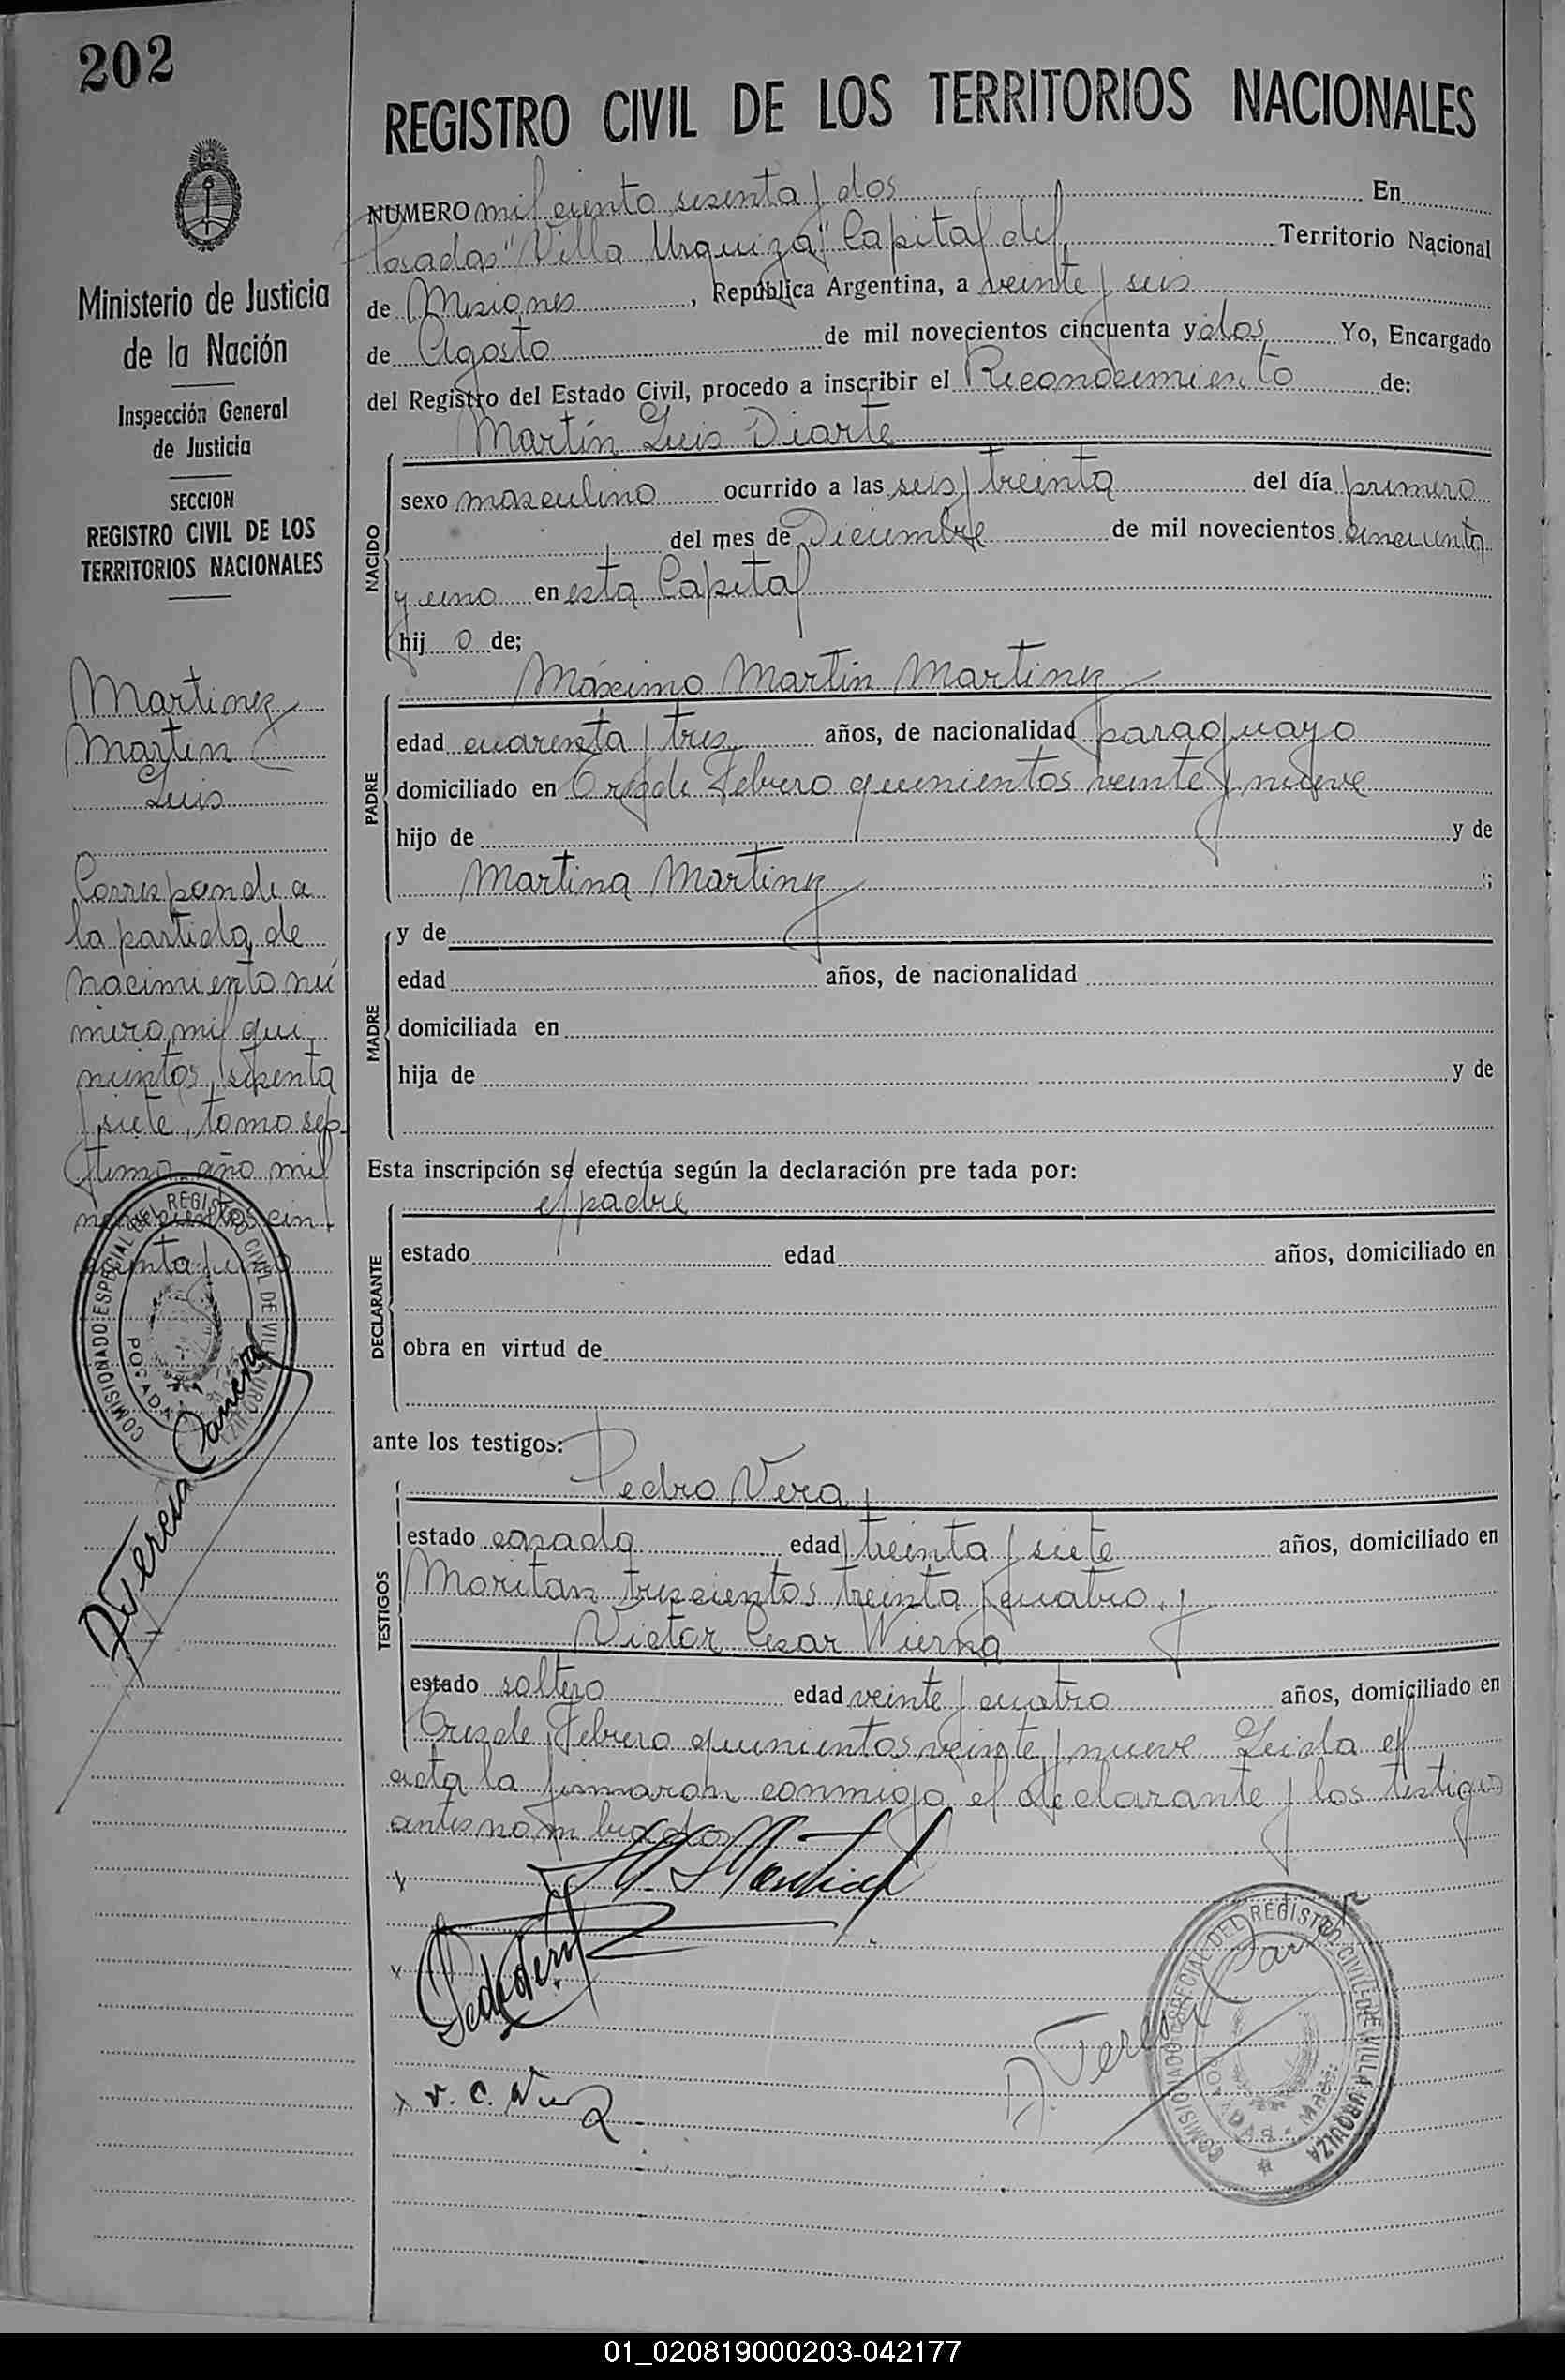 202
REGISTRO CIVIL DE LOS TERRITORIOS NACIONALES
Ministerio de Justicia
de la Nación
Inspección General
de Justicia
SECCION
REGISTRO CIVIL DE LOS
TERRITORIOS NACIONALES
Martinez
Martin
Luis
Corresponde a
la partida de
nacimiento nú
mero mil qui
nientos, sesenta
y siete, tomo sép
timo año mil
novecientos cin
cuenta y uno
COMISIONADO ESPECIAL DEL REGISTRO CIVIL DE VILLA URQUIZA
POSADAS
Teresa
NUMERO mil ciento sesenta y dos En
Posadas "Villa Urquiza" Capital del Territorio Nacional
de Misiones, República Argentina, a veinte y seis
de Agosto de mil novecientos cincuenta y dos Yo, Encargado
del Registro del Estado Civil, procedo a inscribir el Reconocimiento de:
Martín Luis Diarte
NACIDO
sexo masculino ocurrido a las seis y treinta del día primero
del mes de Diciembre de mil novecientos cincuenta
y uno en esta Capital
hij o de;
Máximo Martin Martinez
PADRE
edad cuarenta y tres años, de nacionalidad paraguayo
domiciliado en Tres de Febrero quinientos veinte y nueve
hijo de y de
Martina Martinez ;
MADRE
y de
edad años, de nacionalidad
domiciliada en
hija de y de
Esta inscripción se efectúa según la declaración pre tada por:
el padre
DECLARANTE
estado edad años, domiciliado en
obra en virtud de
ante los testigos:
Pedro Vera
TESTIGOS
estado casado edad treinta y siete años, domiciliado en
Moritan trescientos treinta y cuatro. y
Victor Cesar Wierna
estado soltero edad veinte y cuatro años, domiciliado en
Tres de Febrero quinientos veinte y nueve. Leida el
acta la firmaron conmigo el declarante y los testigos
antes nombrados
V. C.
Teresa
COMISIONADO ESPECIAL DEL REGISTRO CIVIL DE VILLA URQUIZA
POSADAS - Mnes.
01_020819000203-042177